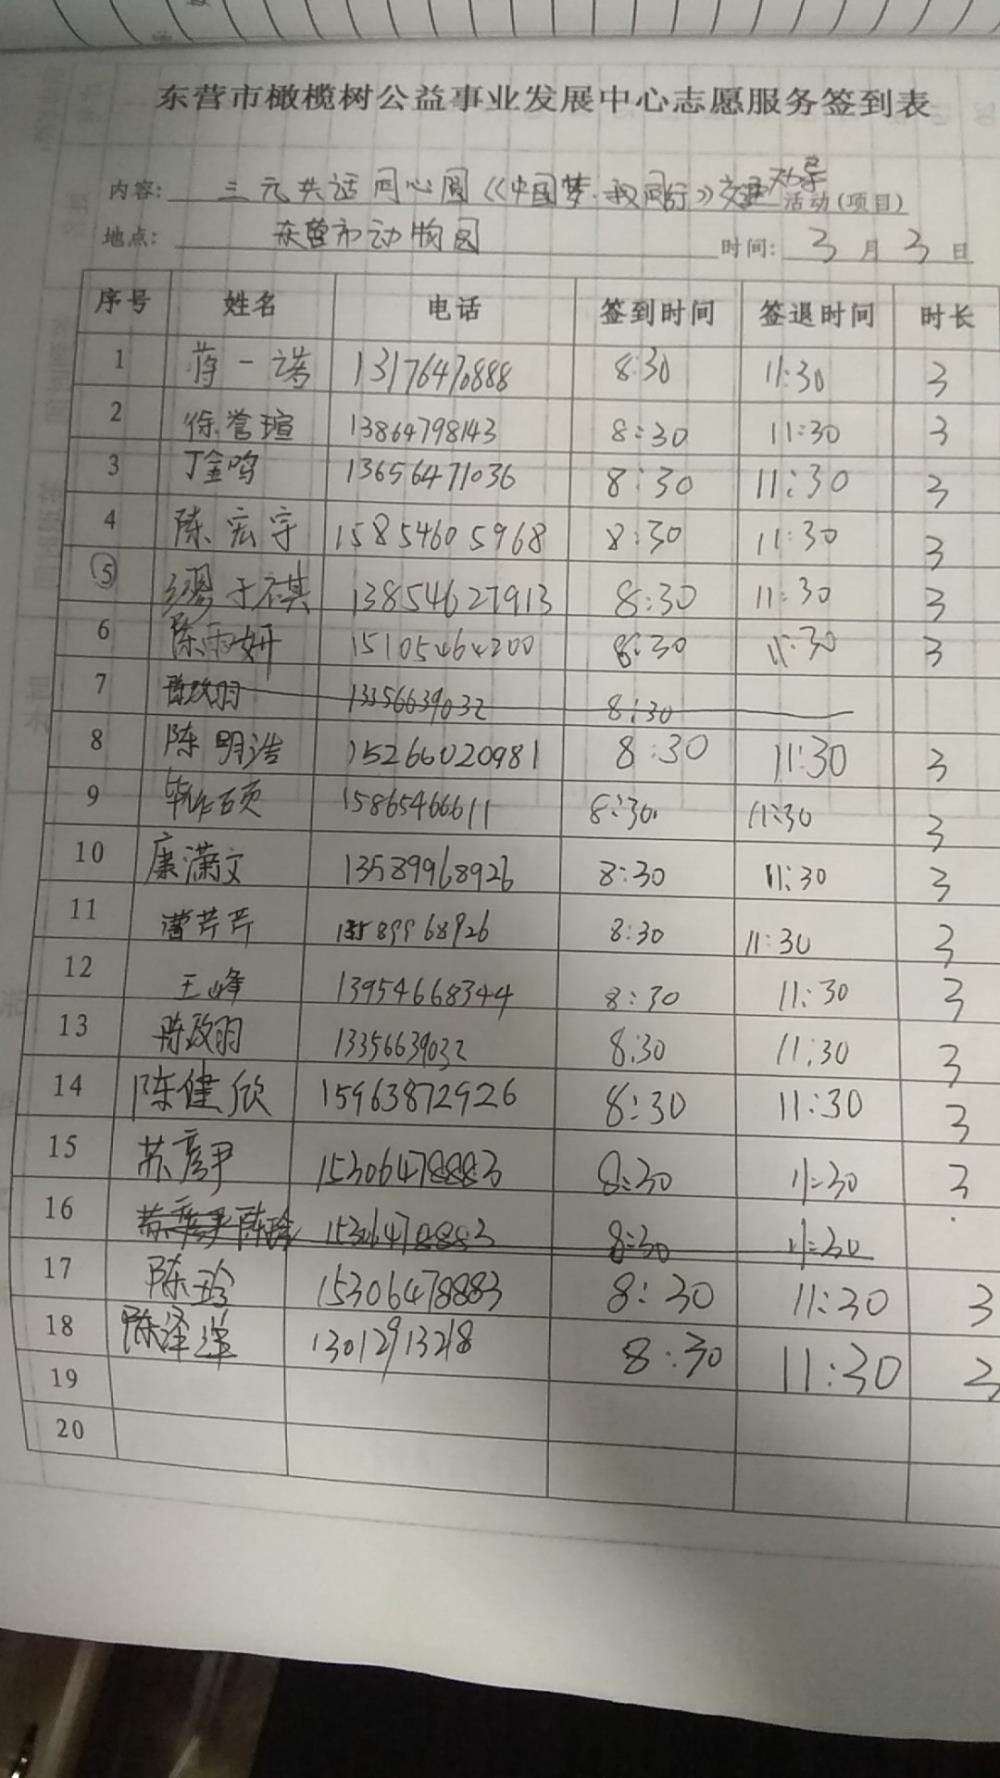 东营市橄榄树公益事业发展中心志愿服务签到表
内容: 三元共话同心圆《中国梦·我同行》交通劝导 活动(项目)
地点: 东营市动物园 时间: 3月3日
序号 姓名 电话 签到时间 签退时间 时长
1 蒋一诺 13176470888 8:30 11:30 3
2 徐誉瑄 13864798143 8:30 11:30 3
3 丁金鸣 13656471036 8:30 11:30 3
4 陈宏宇 15854605968 8:30 11:30 3
5 缪于祺 13854627913 8:30 11:30 3
6 陈雨妍 15105464200 8:30 11:30 3
7 13356639032 8:30
8 陈明浩 15266020981 8:30 11:30 3
9 15865466611 8:30 11:30 3
10 康潇文 13589968926 8:30 11:30 3
11 曹芹芹 13589968926 8:30 11:30 3
12 王峰 13954668344 8:30 11:30 3
13 陈政羽 13356639032 8:30 11:30 3
14 陈健欣 15963872926 8:30 11:30 3
15 苏彦尹 15306478883 8:30 11:30 3
16 苏彦尹 陈玲 15306478883 8:30 11:30
17 陈玲 15306478883 8:30 11:30 3
18 陈泽 13012913218 8:30 11:30 3
19
20